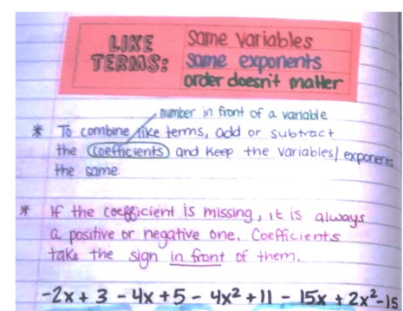 LIKE TERMS:
Same variables
same exponents
order doesn't matter
number in front of a variable
* To combine like terms, add or subtract
the coefficients and keep the variables/exponents
the same.
* If the coefficient is missing, it is always
a positive or negative one. Coefficients
take the sign in front of them.
-2x + 3 - 4x + 5 - 4x² + 11 - 15x + 2x² - 15